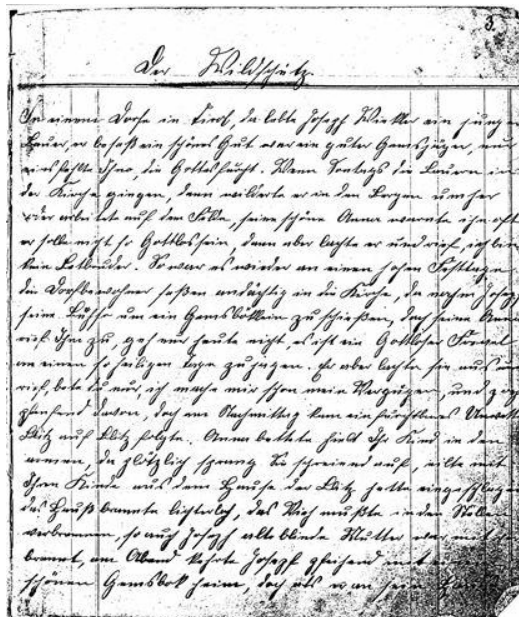 3.
Der Wildschütz.
In einem Dorfe in Tirol, da lebte Josepf Winkler ein junger
Bauer, er besaß ein schönes Gut war ein guter Gemsjäger, nur
eins fehlte Ihm, die Gottesfurcht. Wenn Sontags die Bauern in
der Kirche gingen, dann wilderte er in den Bergen umher
oder arbeitete auf dem Felde, seine schöne Anna warnte ihn oft
er solle nicht so Gottlos sein, dann aber lachte er und rief, ich bin
kein Betbruder. So war es wieder an einen hohen Festtage
die Dorfbewohner saßen andächtig in die Kirche, da nahm Josepf
seine Büchse um ein Gemsböklein zu schießen, doch seine Anna
rief Ihm zu, geh nur heute nicht, es ist ein Gottloser Frevel
an einen so heiligen Tage zu jagen. Er aber lachte sie aus und
rief, bete du nur ich mache mir schon mein Vergnügen, und zog
pfeifend davon, doch am Nachmittag kam ein furchtbares
Blitz auf Blitz folgte. Anna bettete hielt Ihr Kind in den
armen, da plötzlich sprang Sie schreiend auf, eilte mit
Ihren Kinde aus dem Hause der Blitz hatte eingeschlagen
das Hauß brannte lichterloh, das Vieh mußte in den Stallen
verbrennen, so auch Josepf alte blinde Mutter war mit
brannt, am Abend kehrte Josepf pfeifend mit
schönen Gemsbok heim, doch als er an sein